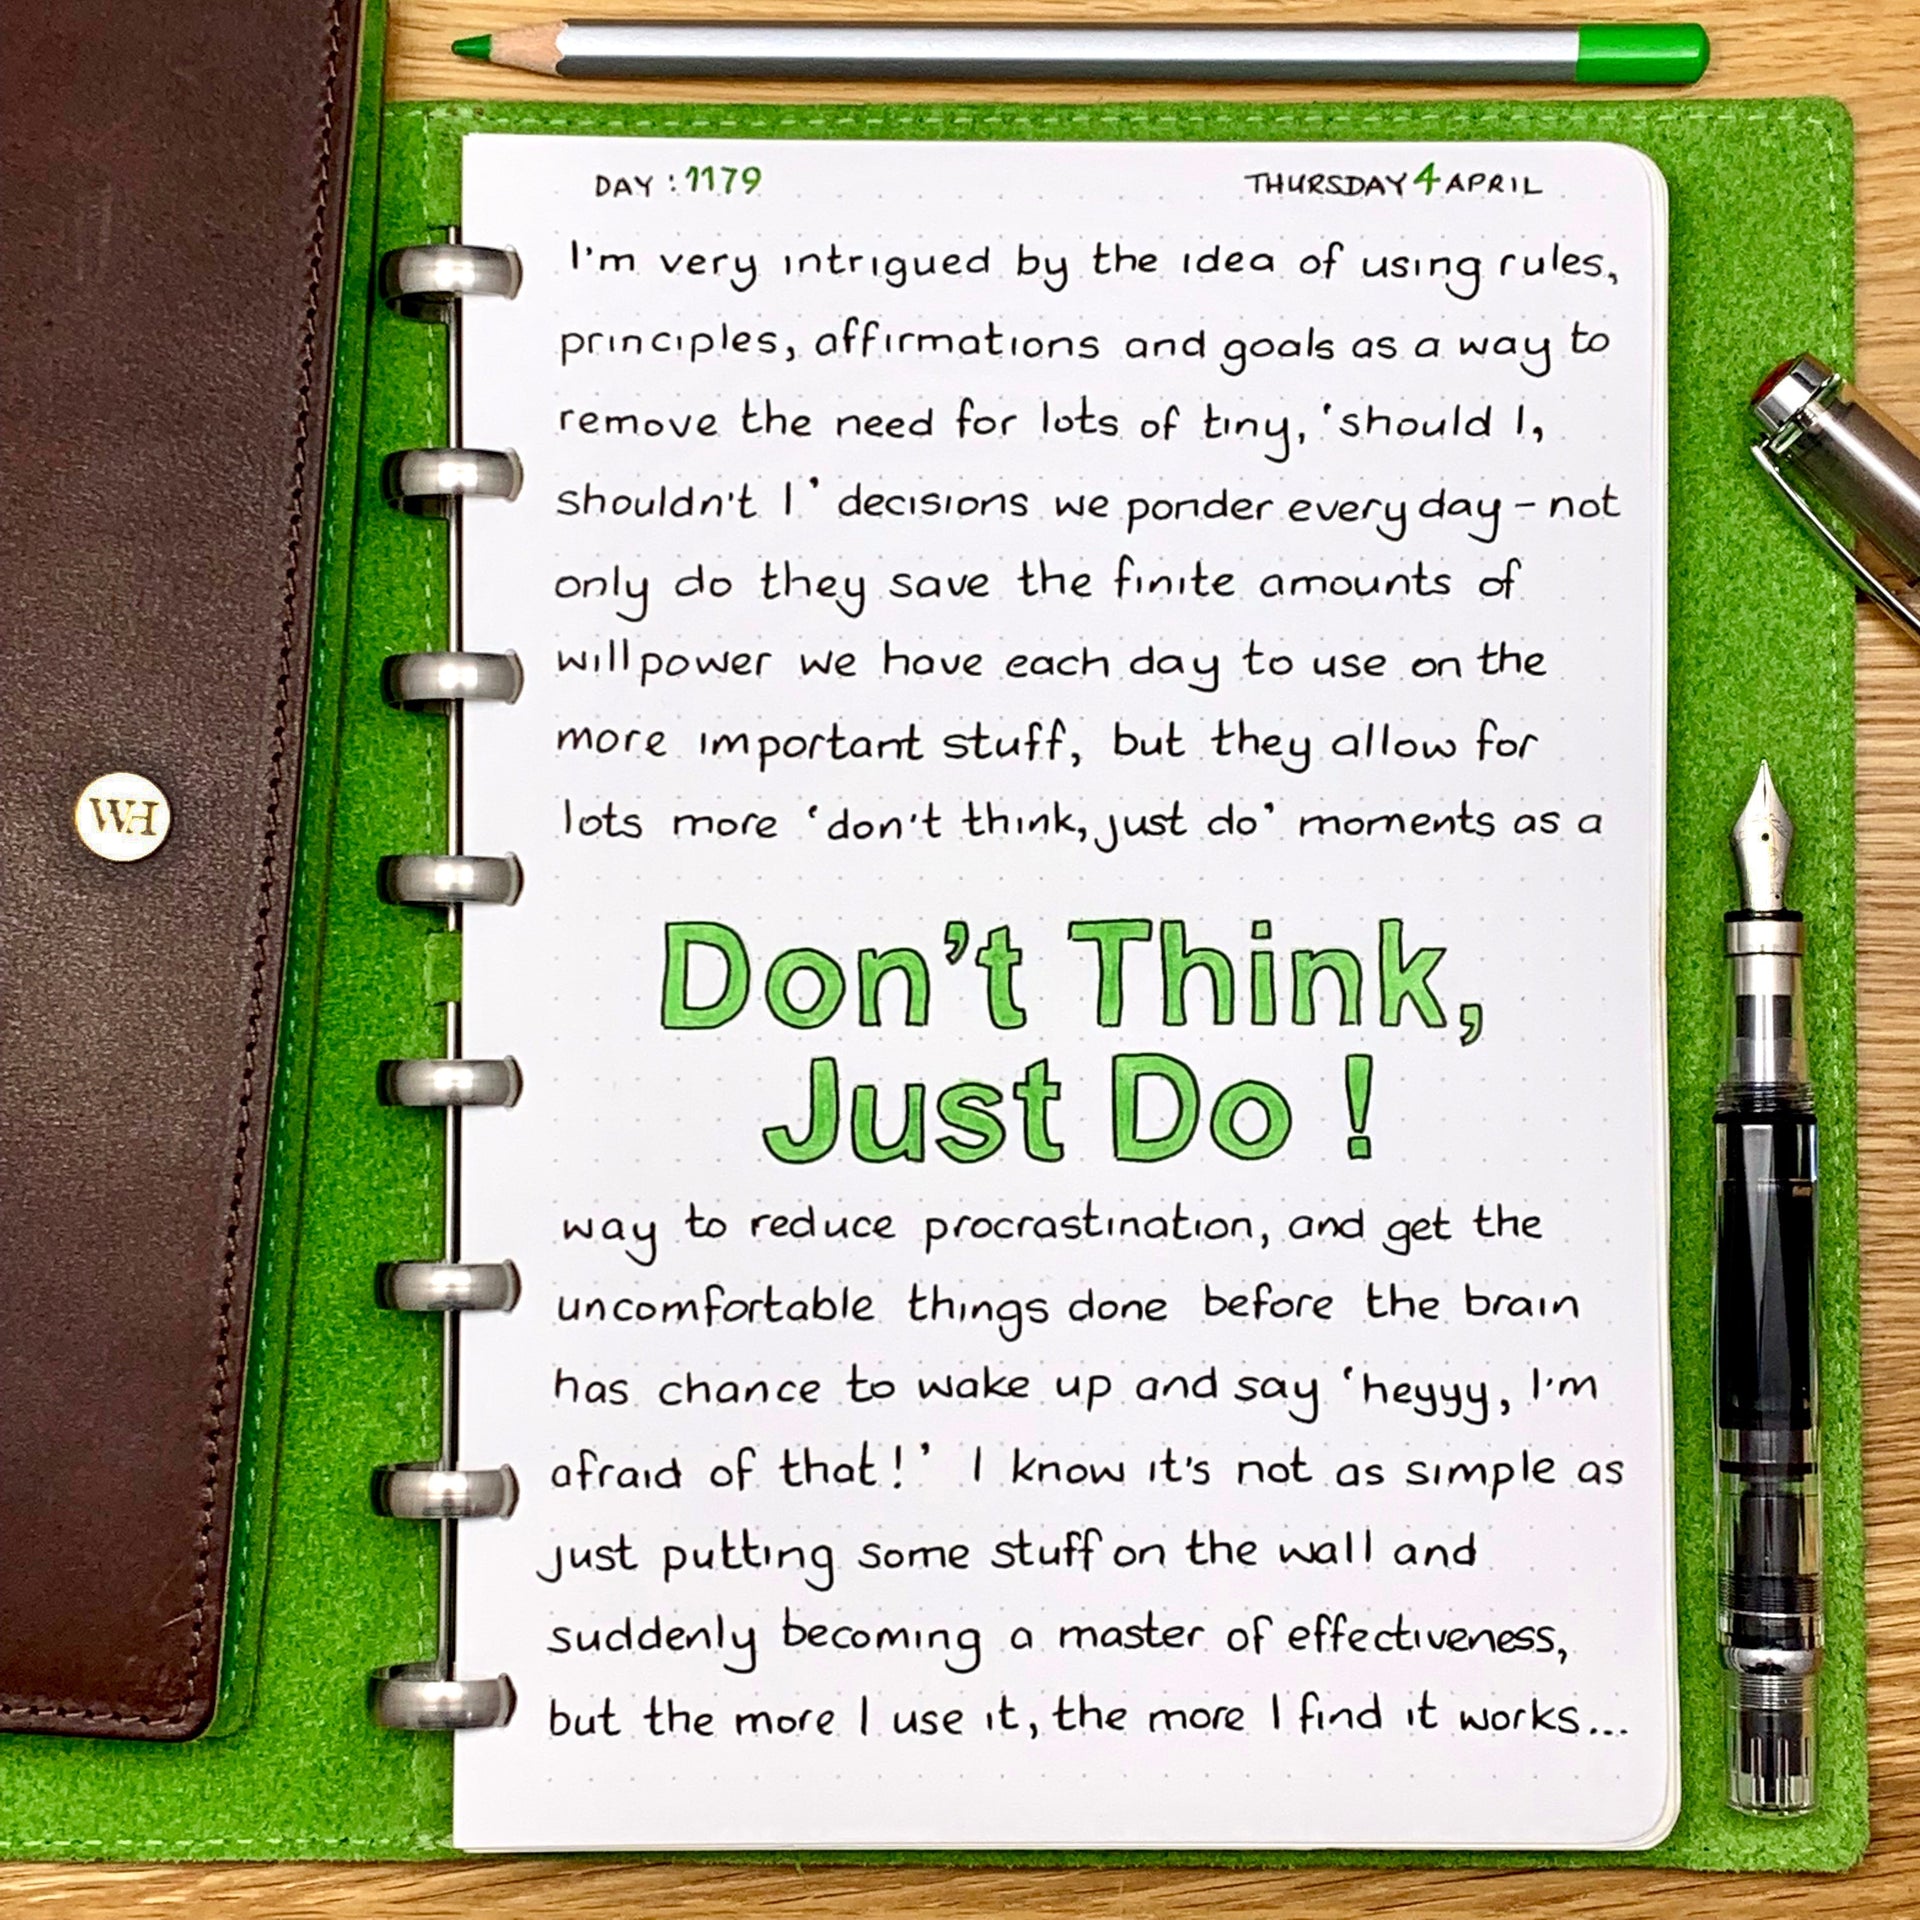 DAY : 1179
THURSDAY 4 APRIL
I'm very intrigued by the idea of using rules,
principles, affirmations and goals as a way to
remove the need for lots of tiny, 'should I,
shouldn't I' decisions we ponder every day – not
only do they save the finite amounts of
willpower we have each day to use on the
more important stuff, but they allow for
lots more 'don't think, just do' moments as a
Don't Think,
Just Do !
way to reduce procrastination, and get the
uncomfortable things done before the brain
has chance to wake up and say 'heyyy, I'm
afraid of that!' I know it's not as simple as
just putting some stuff on the wall and
suddenly becoming a master of effectiveness,
but the more I use it, the more I find it works...
WH